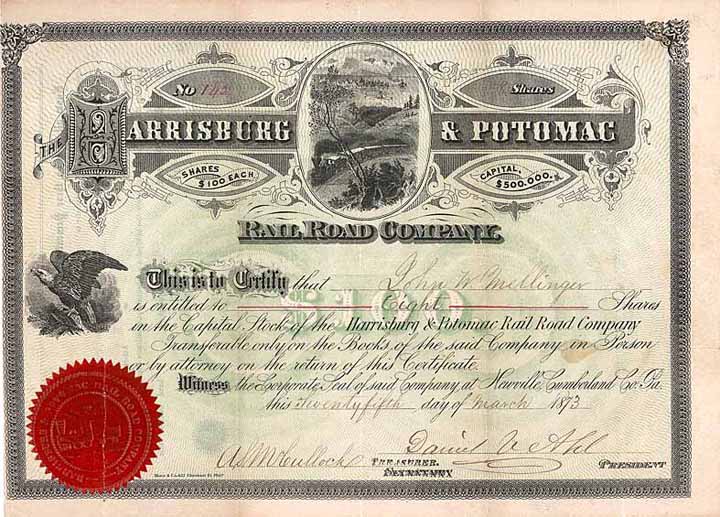 No 142
Shares
THE HARRISBURG & POTOMAC
SHARES $100 EACH
CAPITAL, $500.000.
RAIL ROAD COMPANY.
This is to Certify that John W Mellinger
is entitled to Eight Shares
$100
in the Capital Stock of the Harrisburg & Potomac Rail Road Company
Transferable only on the Books of the said Company in Person
or by attorney on the return of this Certificate.
Witness the Corporate Seal of said Company at Newville Cumberland Co. Pa.
this Twentyfifth day of March 1873
Daniel V Ahl
A S McCullock TREASURER. PRESIDENT